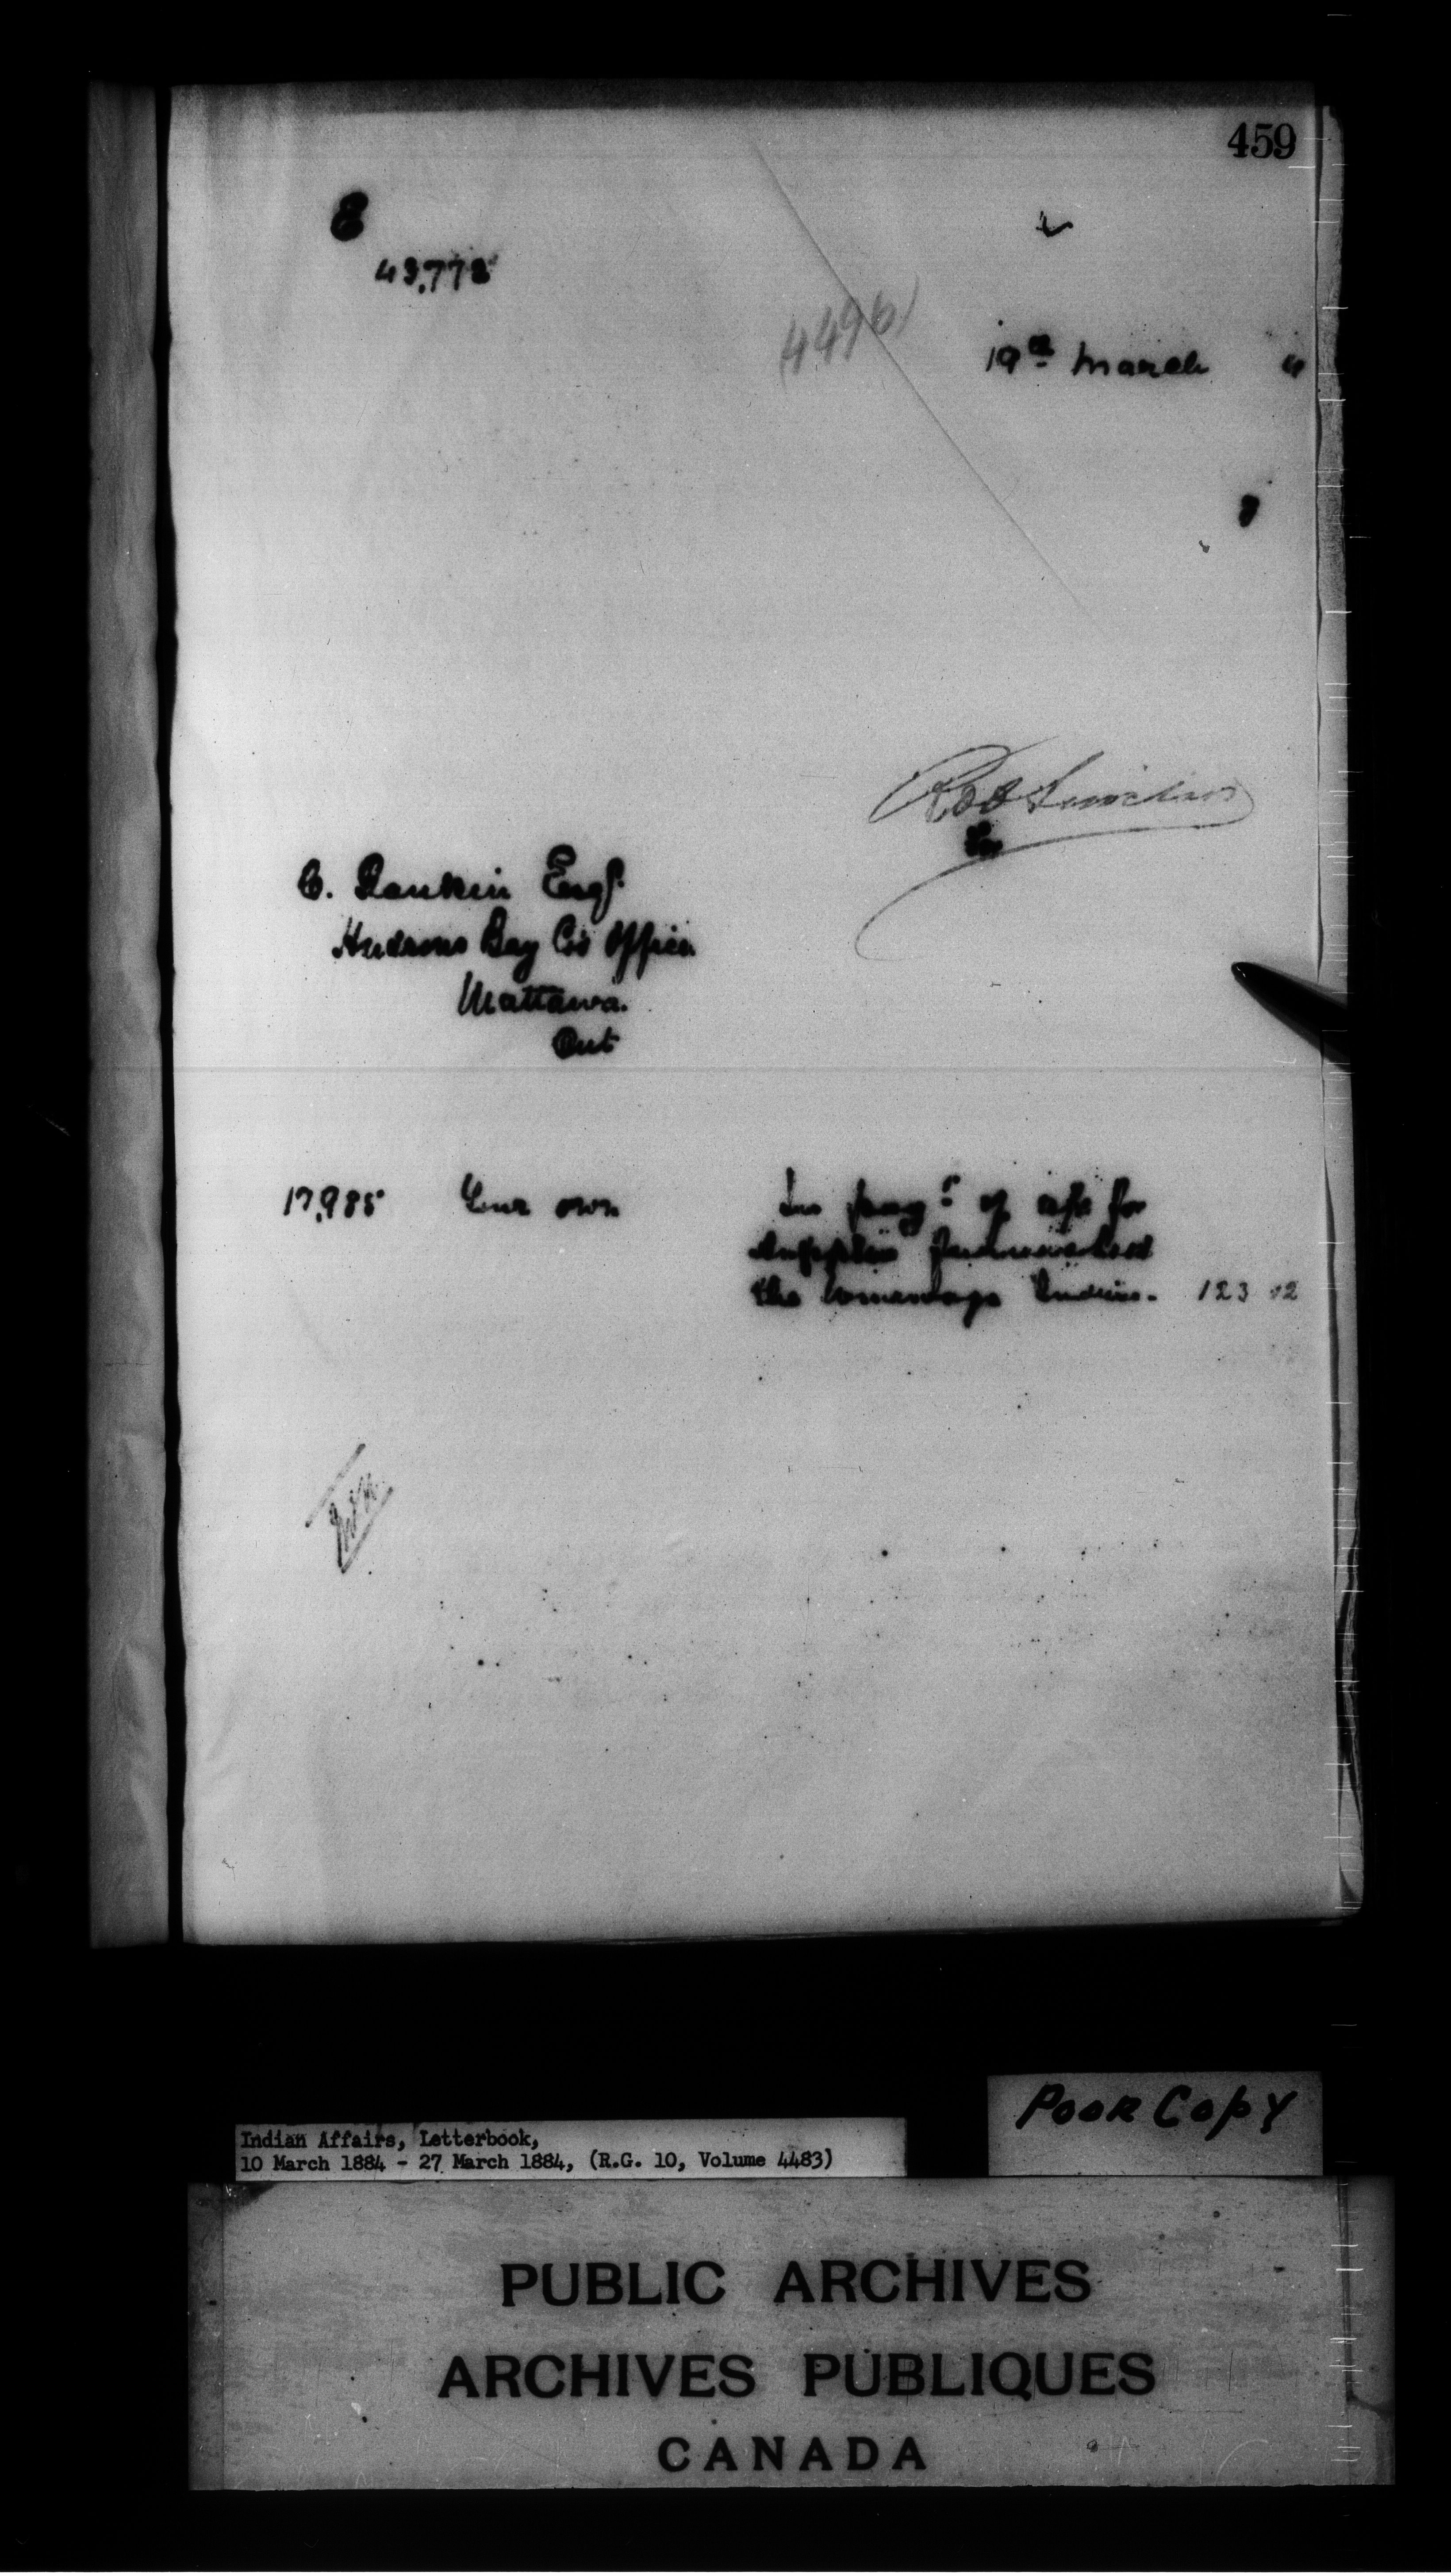 459
E
43,778
4496
19th March "
Robt Sinclair
for
C. Rankin Esqr.
Hudsons Bay Co's Office
Mattawa.
Ont
17,985 Your own In paymt of a/c for
supplies furnished
the Indians. 123 02
Poor Copy
Indian Affairs, Letterbook,
10 March 1884 - 27 March 1884, (R.G. 10, Volume 4483)
PUBLIC ARCHIVES
ARCHIVES PUBLIQUES
CANADA